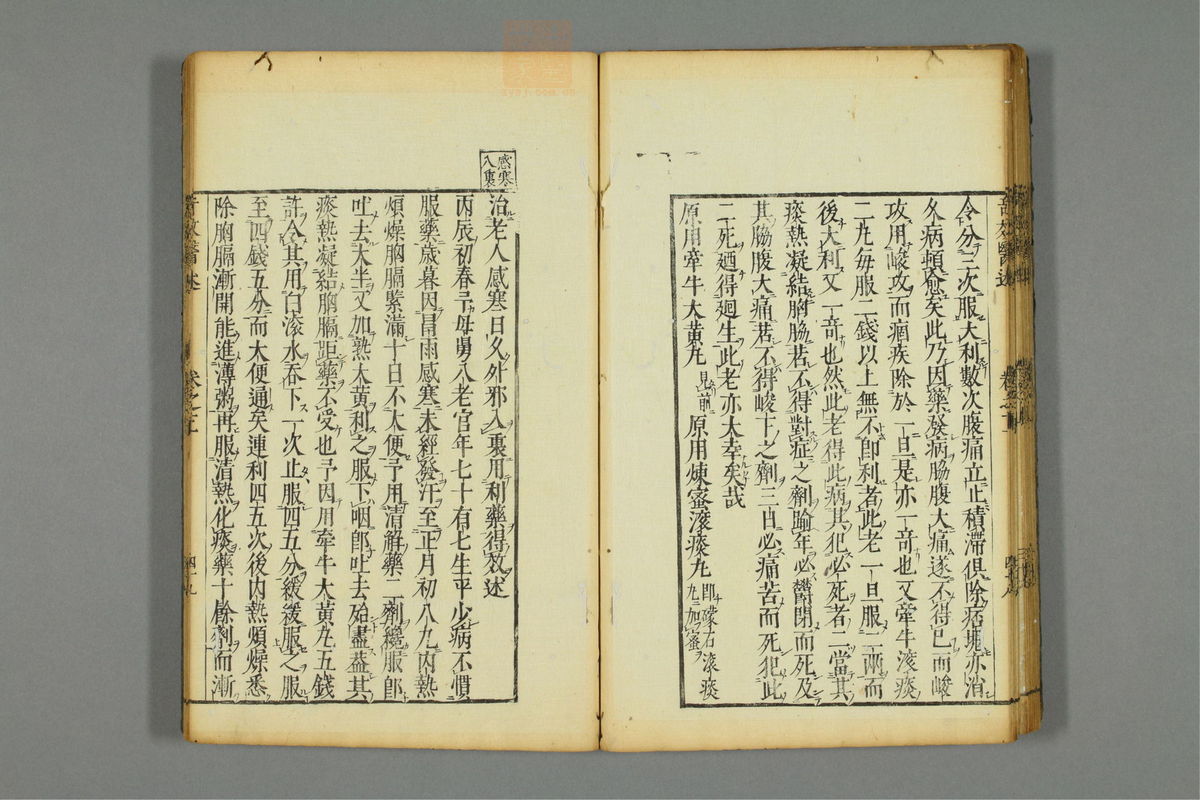 令分二次服大利數次腹痛立止積滯俱除痞塊亦消
久病頓愈矣此乃因藥發病脇腹大痛遂不得已而峻
攻用峻攻而痼疾除於一旦是亦一奇也又牽牛滾痰
二九每服二錢以上無不即利者此老一旦服二兩而
後大利又一奇也然此老得此病其犯必死者二當其
痰熱凝結胸脇若不得對症之劑踰年必鬱閉而死及
其脇腹大痛若不得峻下之劑三日必痛苦而死犯此
二死廼得廻生此老亦大幸矣哉
原用牽牛大黃丸 見前 原用煉蜜滾痰丸 即礞石滾痰丸ニ加蜜
感寒入裏
治老人感寒日久外邪入裏用利藥得效述
丙辰初春予母舅八老官年七十有七生平少病不慣
服藥歲暮因冒雨感寒未經發汗至正月初八九內熱
煩燥胸膈緊滿十日不大便予用清解藥二劑纔服即
吐去大半又加熟大黃利之服下咽即吐去殆盡葢其
痰熱凝結胸膈距藥不受也予因用牽牛大黃丸五錢
許令其用白滾水吞下一次止服四五分緩緩服之服
至四錢五分而大便通矣連利四五次後內熱煩燥悉
除胸膈漸開能進薄粥再服清熱化痰藥十餘劑而漸